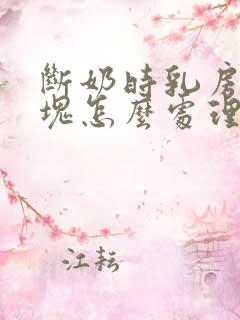 斷奶時乳房
塊怎麼處理
江耘